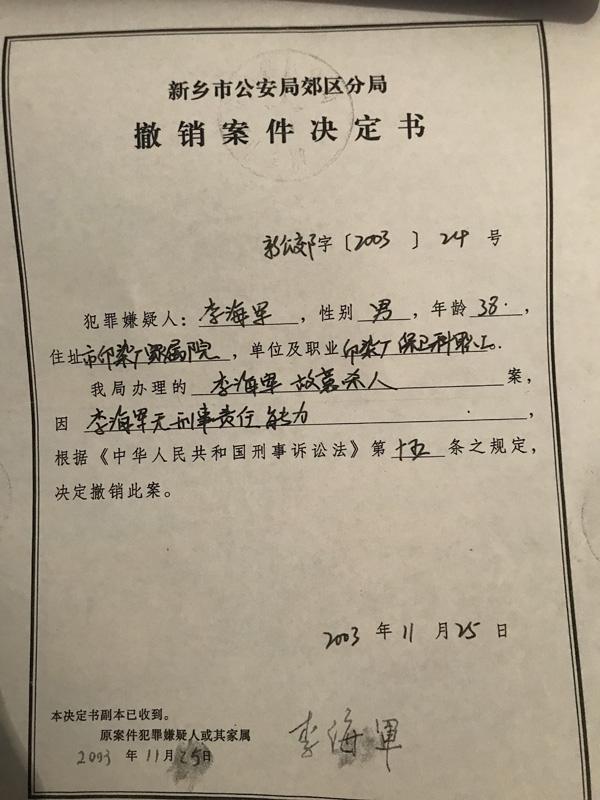 新乡市公安局郊区分局
撤销案件决定书
新公郊字〔2003〕24号
犯罪嫌疑人：李海军，性别 男，年龄38.，
住址市印染厂家属院，单位及职业印染厂保卫科职工。
我局办理的 李海军故意杀人 案，
因 李海军无刑事责任能力，
根据《中华人民共和国刑事诉讼法》第十五条之规定，
决定撤销此案。
2003年11月25日
本决定书副本已收到。
原案件犯罪嫌疑人或其家属
李海军
2003年11月25日